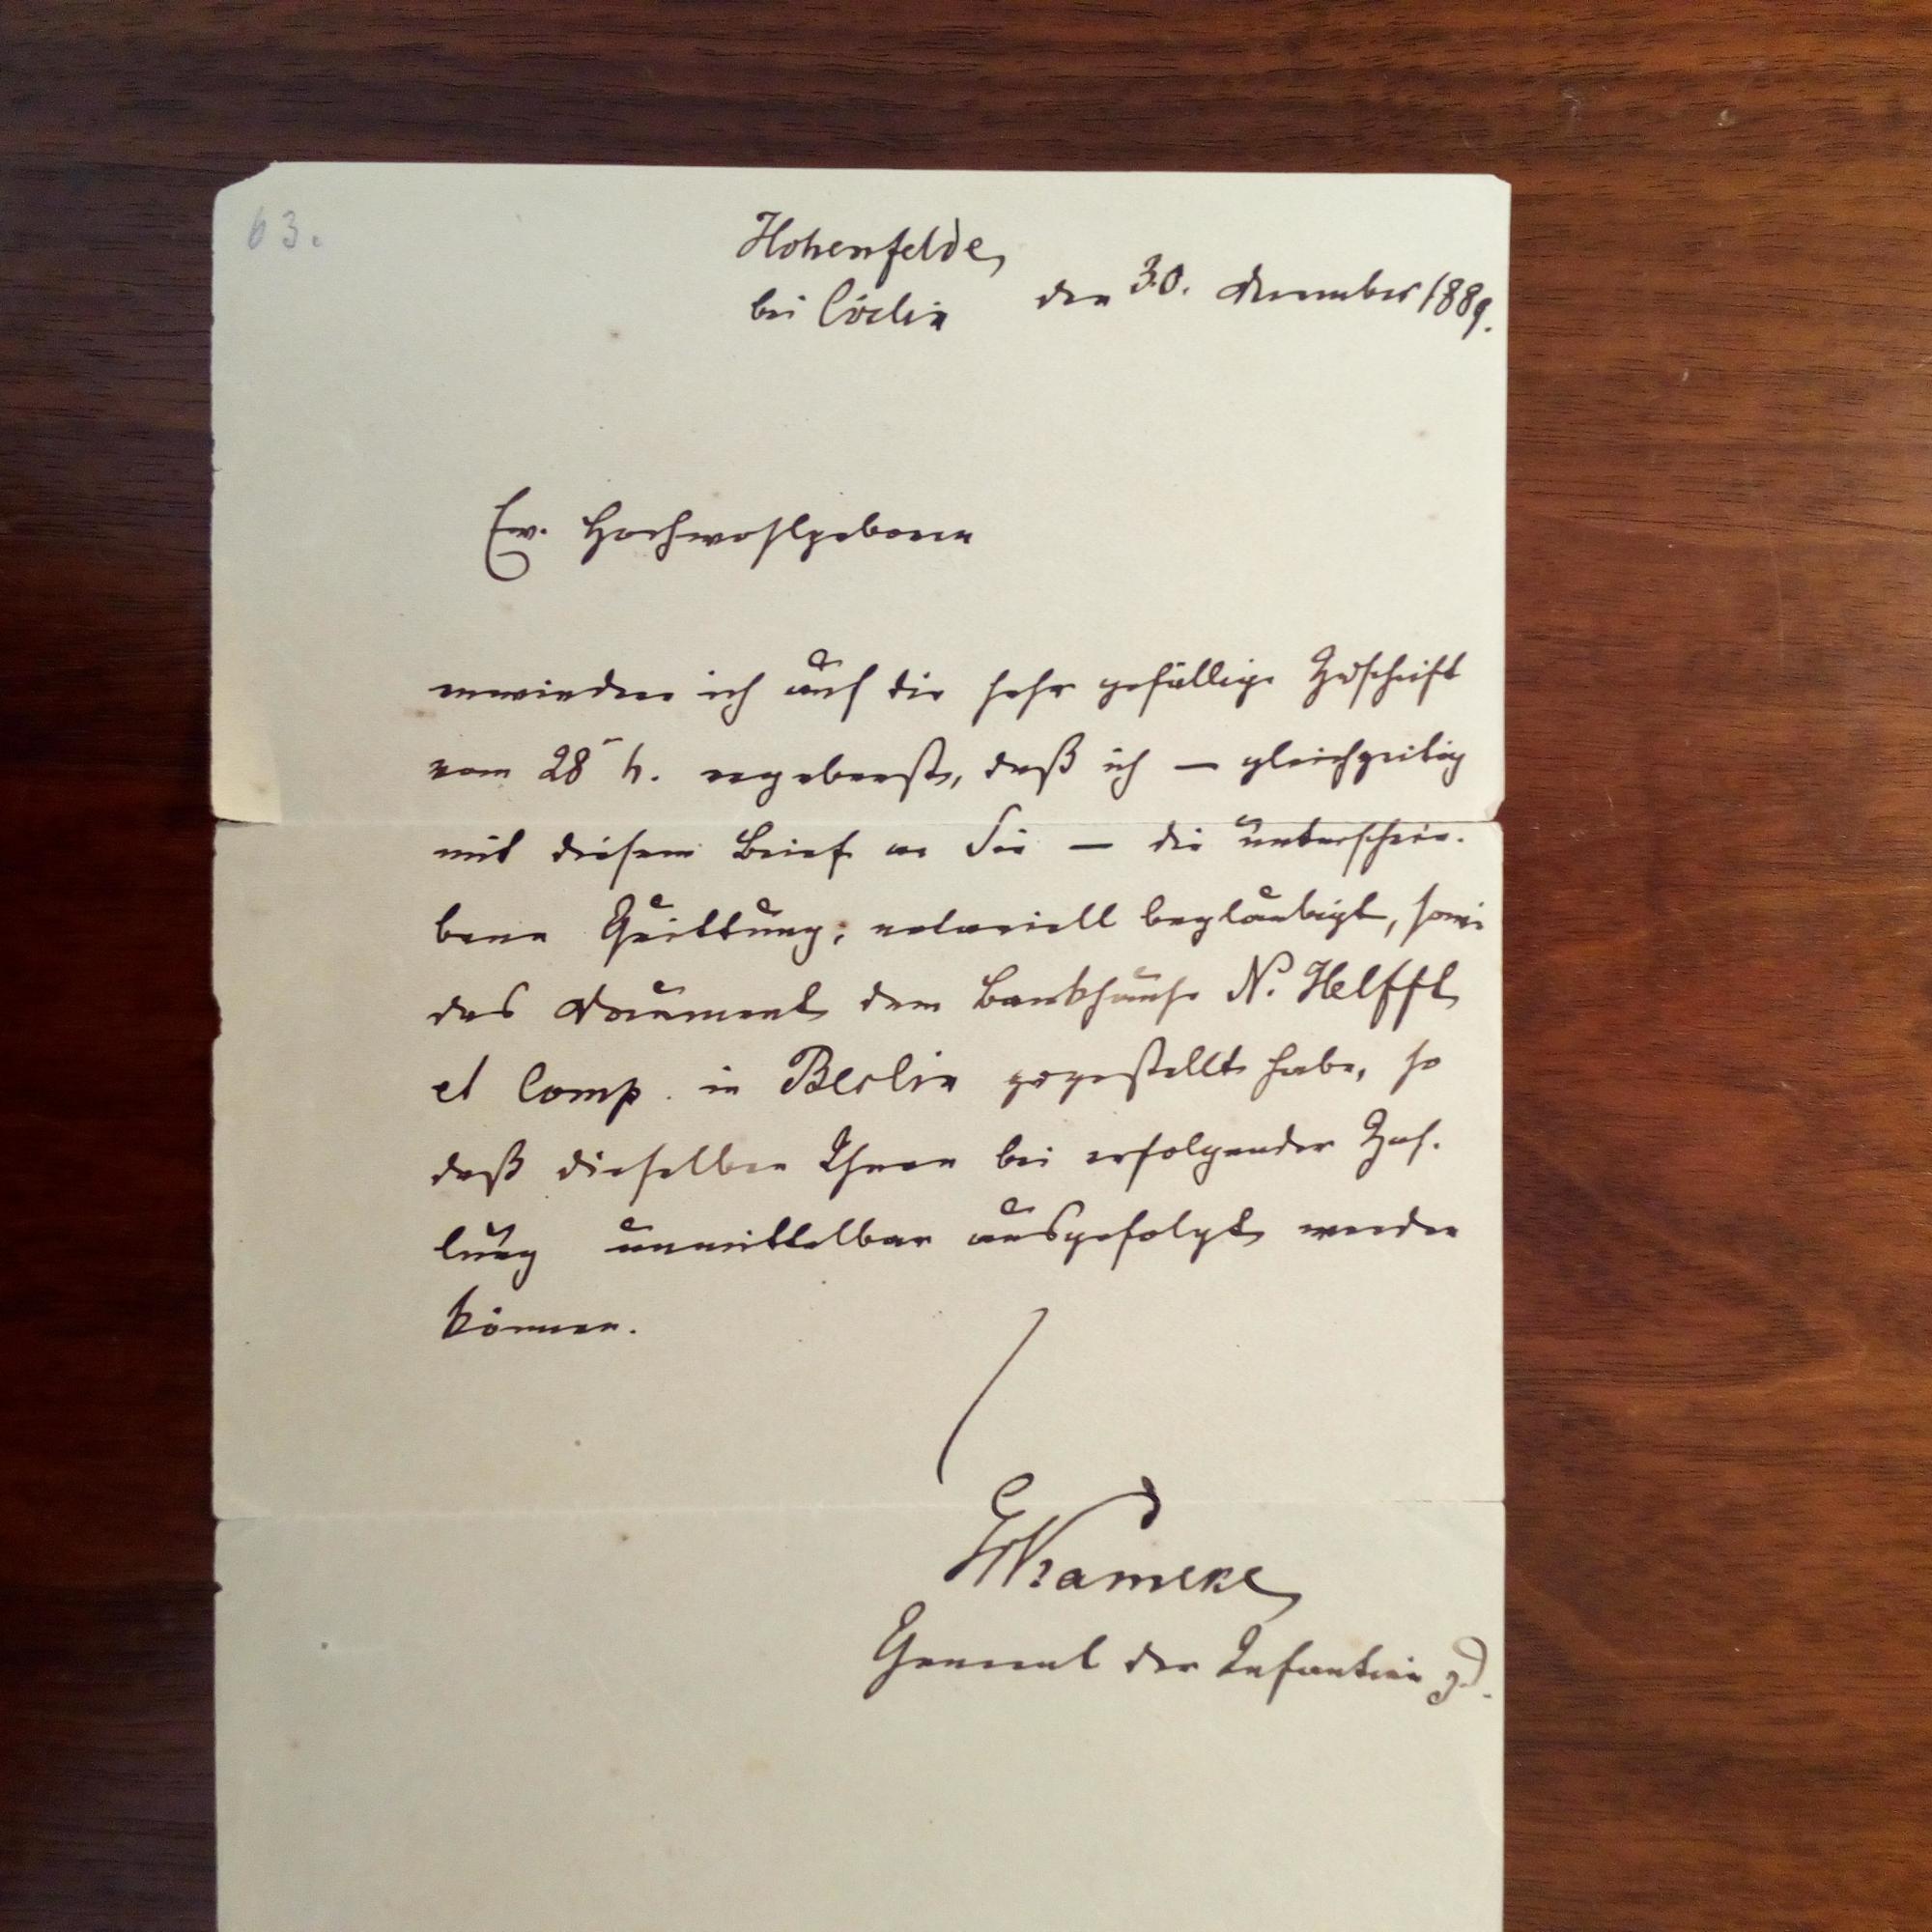 63.
Hohenfelde,
bei Cöslin den 30. December 1889.
Ew. Hochwohlgeboren
erwiedere ich auf die sehr gefällige Zuschrift
vom 28 h. ergebenst, daß ich — gleichzeitig
mit diesem Brief an Sie — die unterschrie-
bene Quittung, notariell beglaubigt, sowie
das Document dem Bankhause N. Helfft
et Comp. in Berlin zugestellt habe, so
daß dieselben Ihnen bei erfolgender Zah-
lung unmittelbar ausgefolgt werden
können.
Kameke
General der Infanterie z.D.